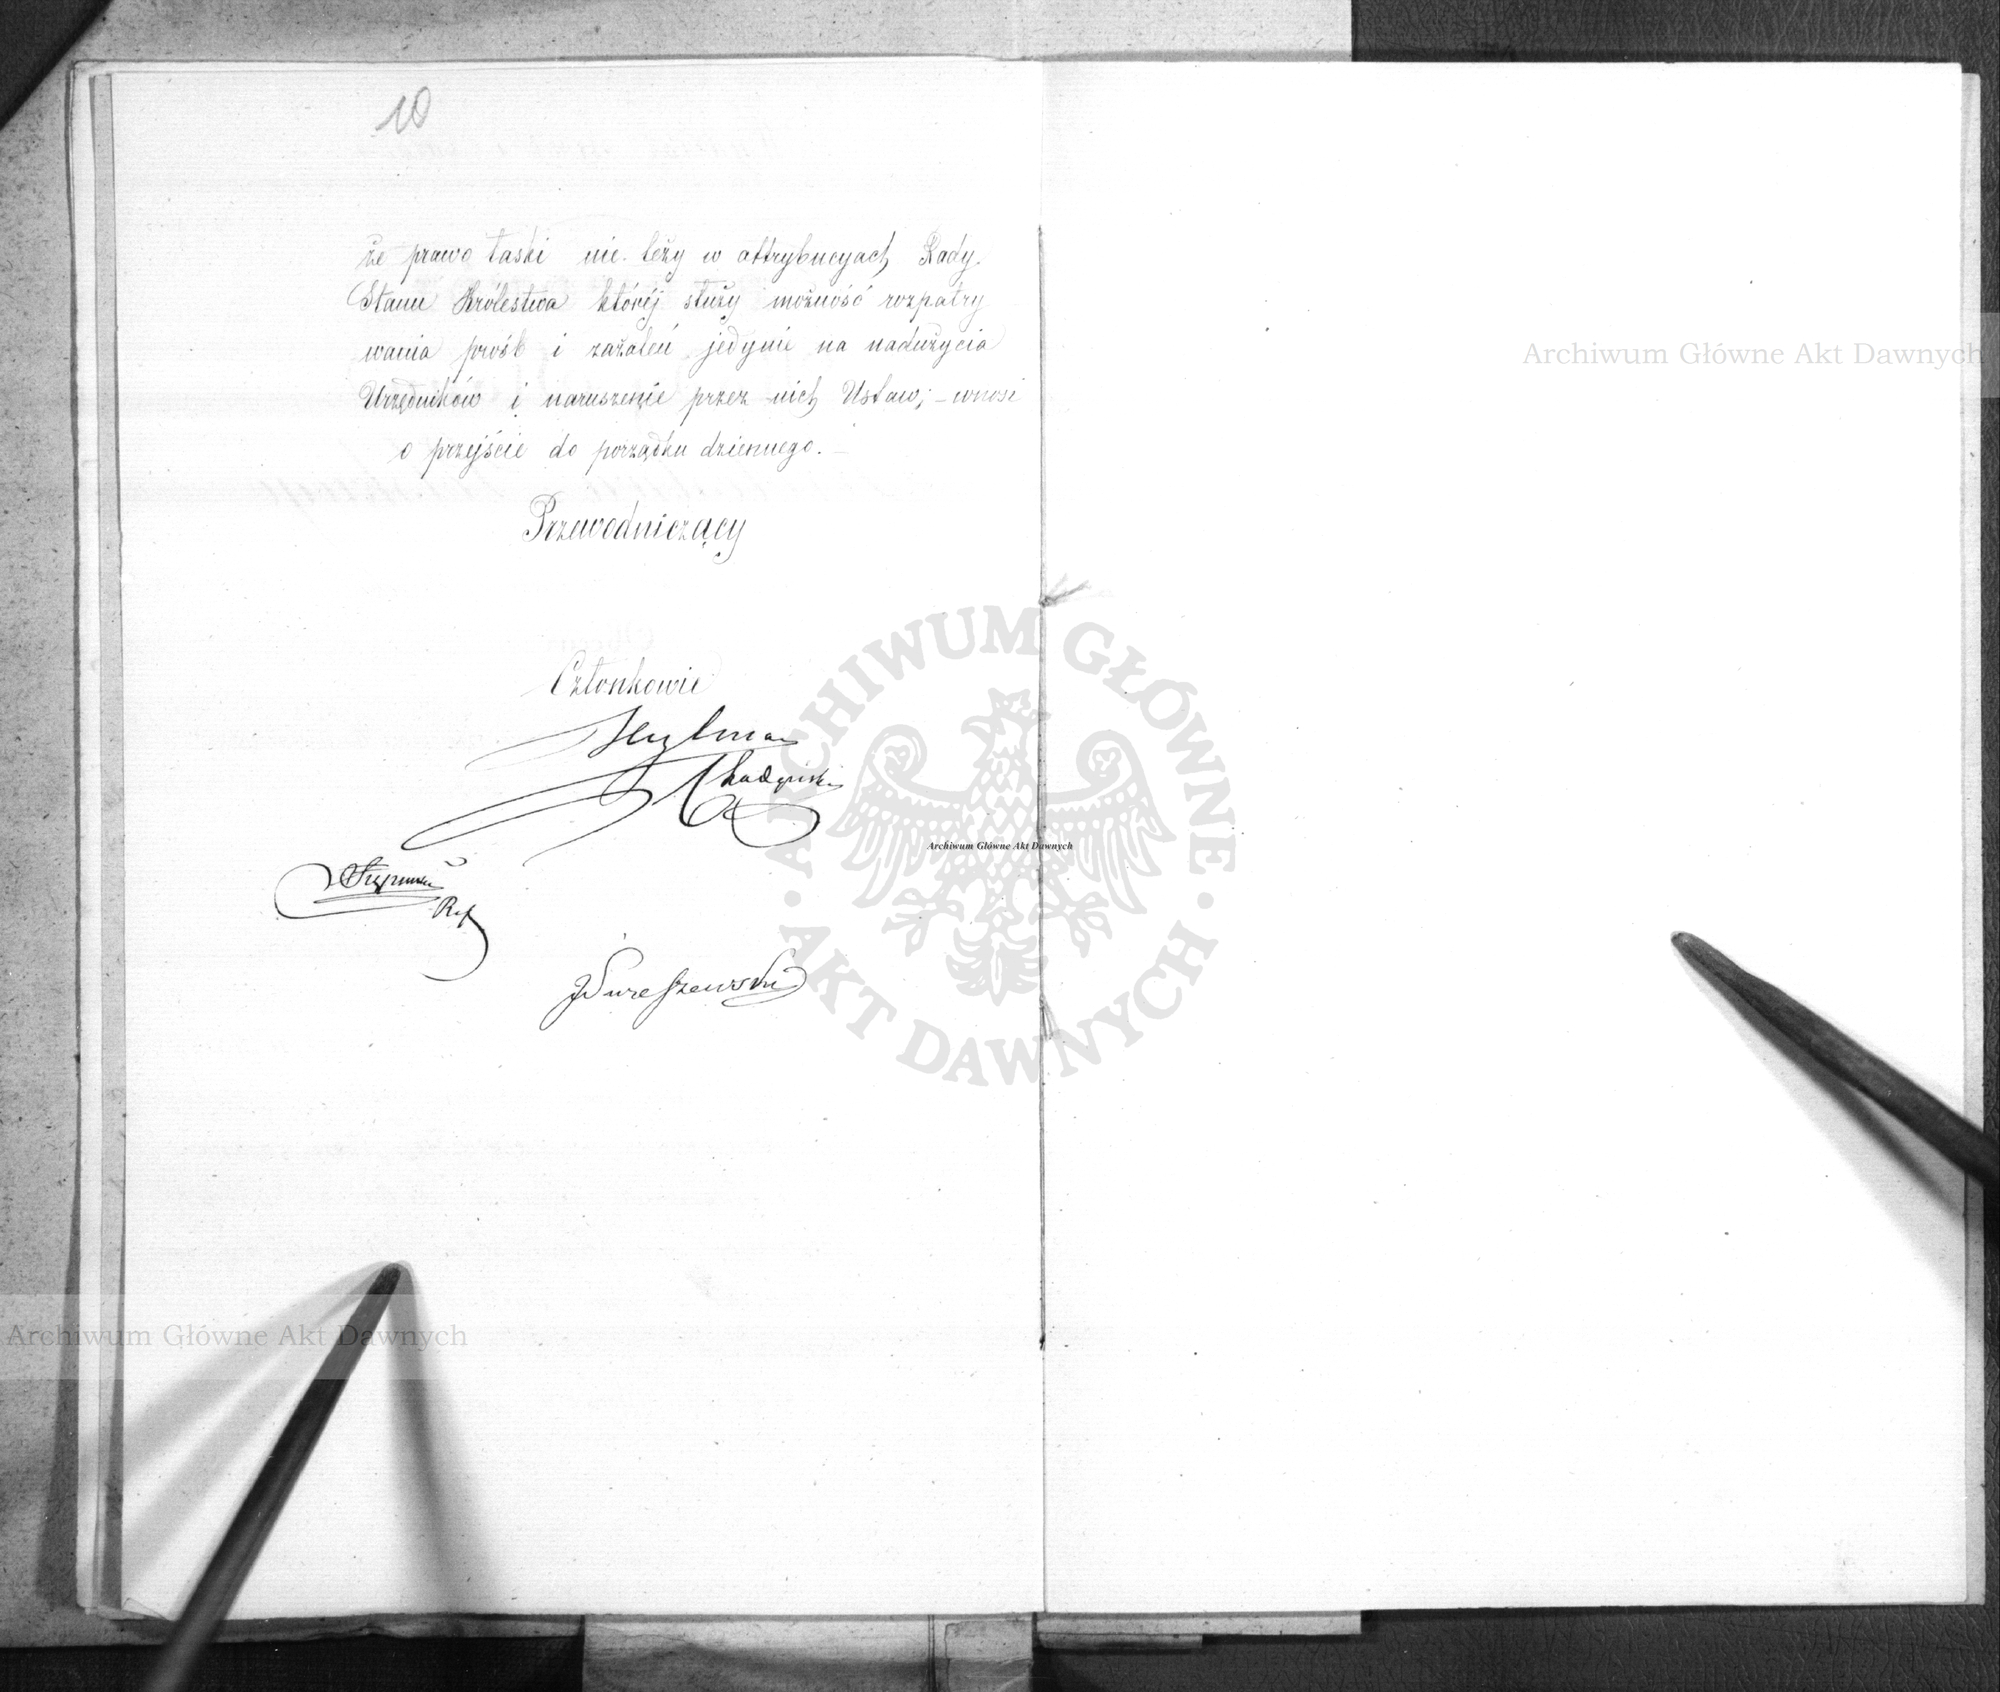 10
że prawo łaski nie leży w attrybucyach Rady
Stanu Królestwa któréj służy możność rozpatry
wania próśb i zażaleń jedynie na nadużycia
Urzędników i naruszenie przez nich Ustaw; – wnosi
o przejście do porządku dziennego. –
Przewodniczący
Członkowie
Heylman
Ref
Archiwum Główne Akt Dawnych
ARCHIWUM GŁÓWNE · AKT DAWNYCH ·
Archiwum Główne Akt Dawnych
Archiwum Główne Akt Dawnych